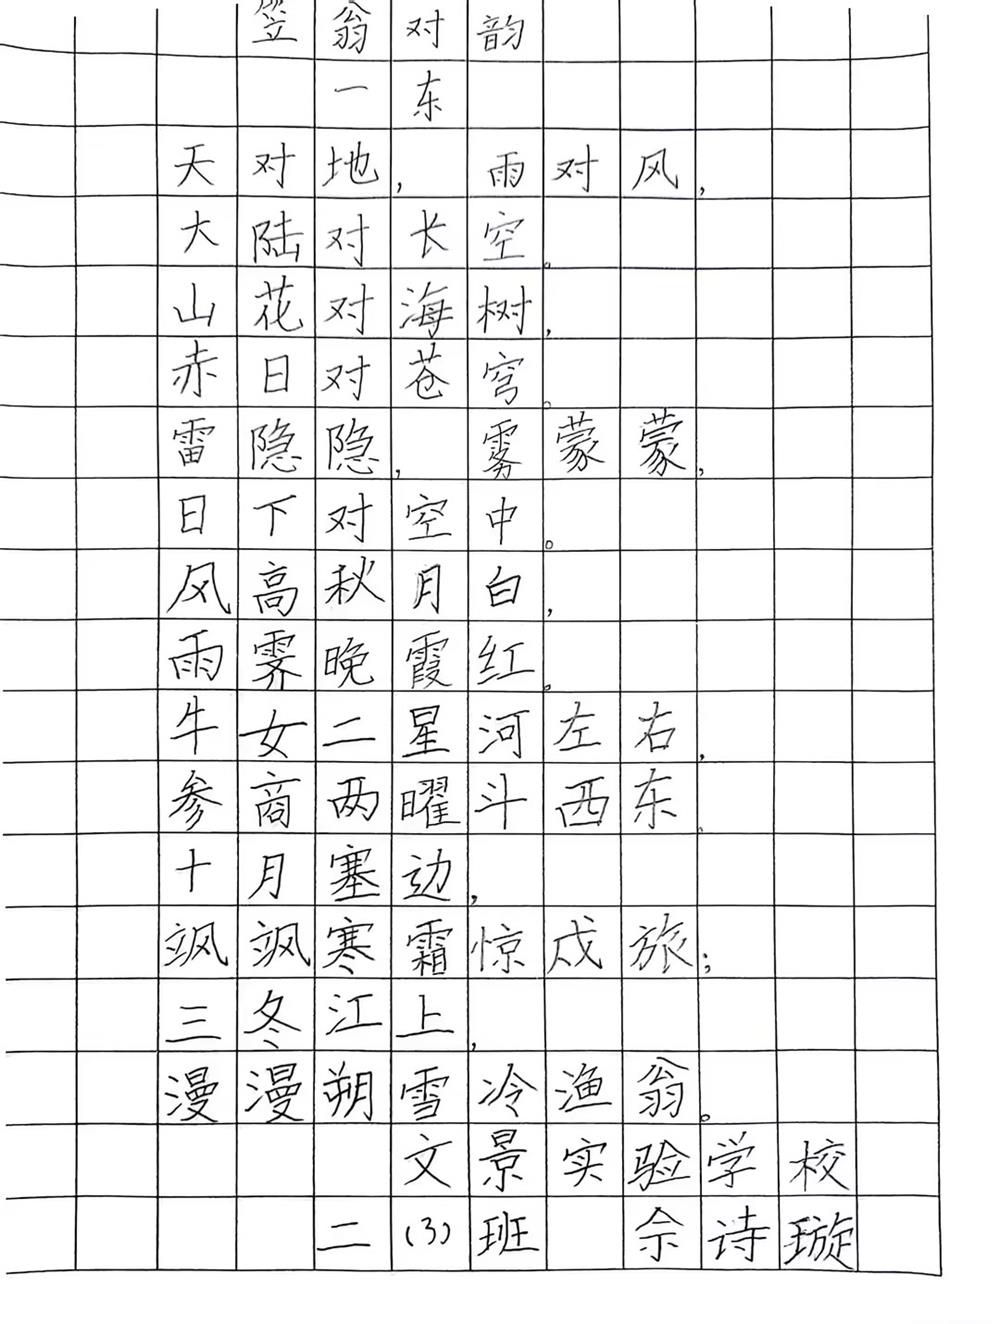 笠翁对韵
一东
天对地，雨对风，
大陆对长空。
山花对海树，
赤日对苍穹。
雷隐隐，雾蒙蒙，
日下对空中。
风高秋月白，
雨霁晚霞红。
牛女二星河左右，
参商两曜斗西东。
十月塞边，
飒飒寒霜惊戍旅；
三冬江上，
漫漫朔雪冷渔翁。
文景实验学校
二(3)班 佘诗璇